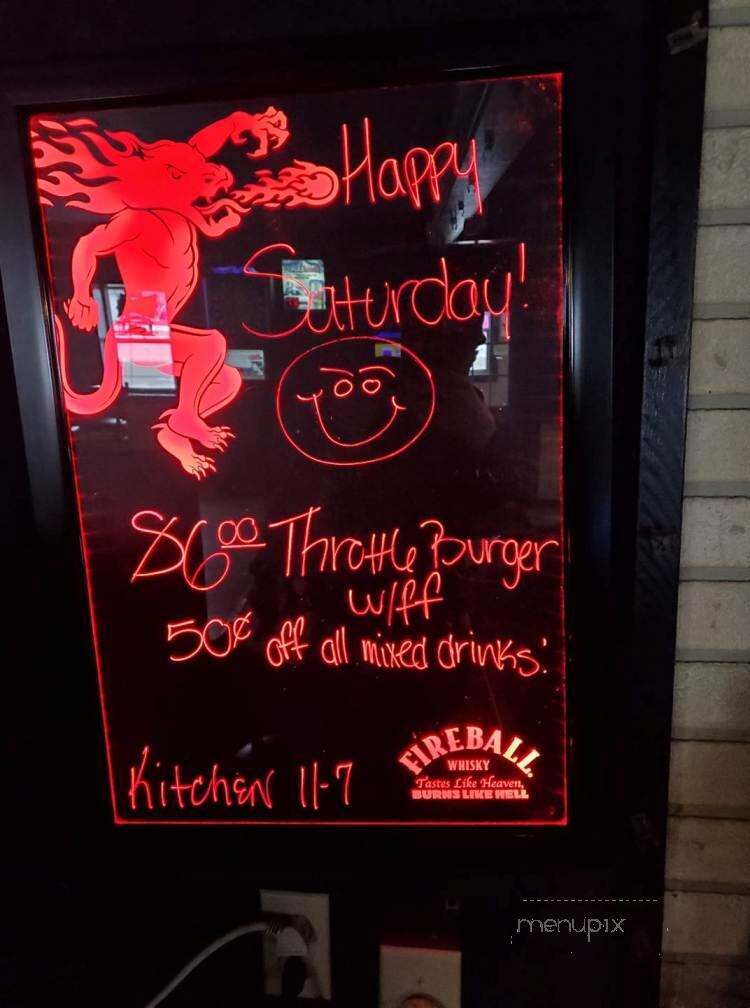 Happy
Saturday!
$6.00 Throttle Burger
w/ff
50¢ off all mixed drinks!
Kitchen 11-7
FIREBALL
WHISKY
Tastes Like Heaven,
BURNS LIKE HELL
menupix